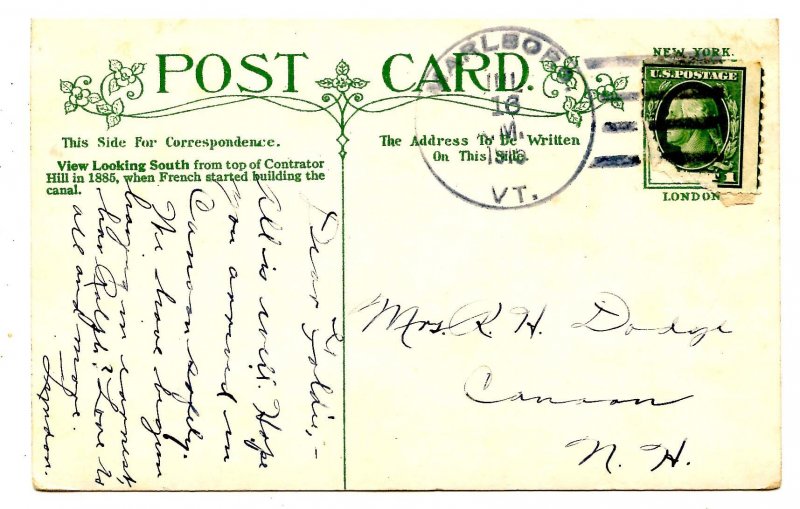 POST CARD.
MARLBORO,
JUL
16
M.
VT.
NEW YORK.
U.S. POSTAGE
1
LONDON
This Side For Correspondence.
The Address To Be Written
On This Side.
View Looking South from top of Contrator
Hill in 1885, when French started building the
canal.
Dear Goldie,-
All is well. Hope
you arrived in
Canaan safely.
We have begun
haying in earnest,
has Ralph? Love to
all and more.
Lyndon.
Mrs. R. H. Dodge
Canaan
N. H.